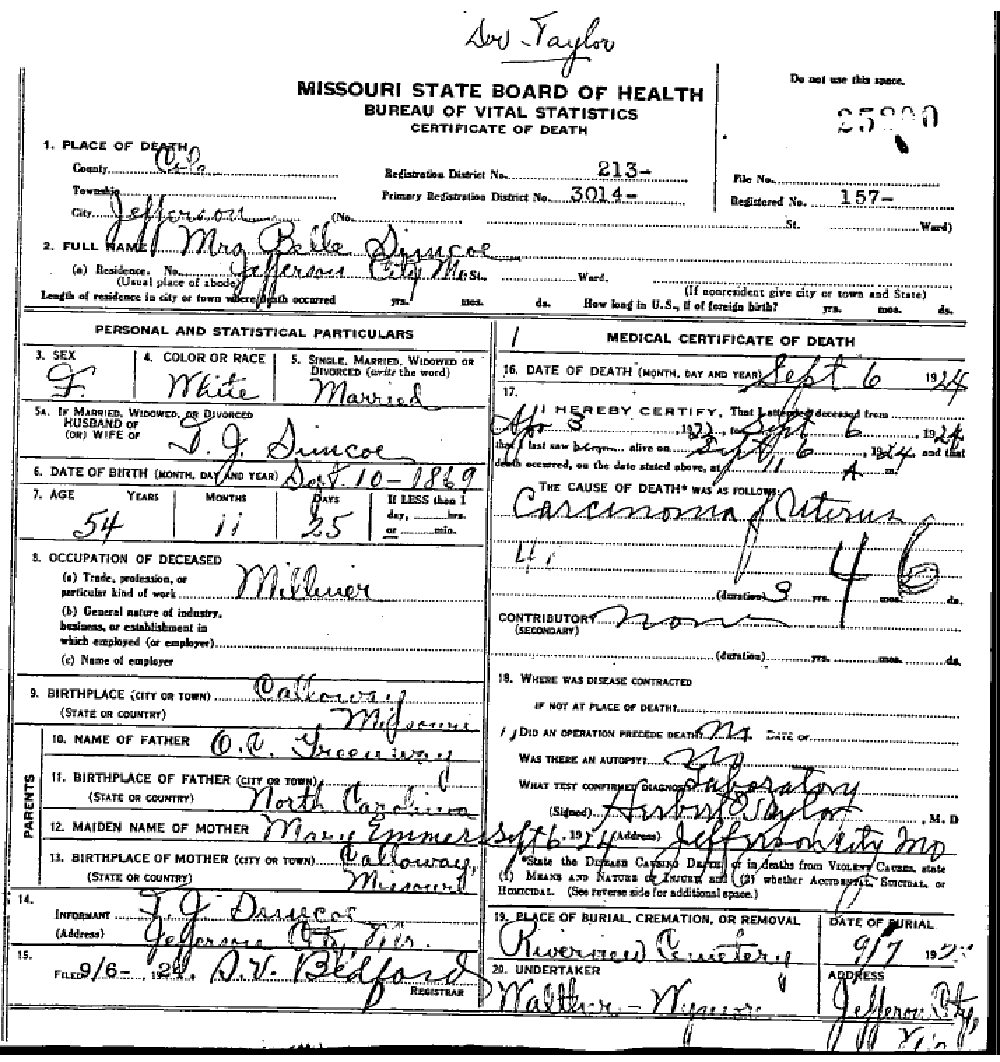 Taylor
Do not use this space.
MISSOURI STATE BOARD OF HEALTH
BUREAU OF VITAL STATISTICS
CERTIFICATE OF DEATH
1. PLACE OF DEATH
County Cole Registration District No. 213- File No.
Township Primary Registration District No. 3014- Registered No. 157-
City Jefferson (No. St. Ward)
2. FULL NAME Mrs Belle Simcoe
(a) Residence. No. Jefferson City Mo St. Ward.
(Usual place of abode) (If nonresident give city or town and State)
Length of residence in city or town where death occurred yrs. mos. ds. How long in U.S., if of foreign birth? yrs. mos. ds.
PERSONAL AND STATISTICAL PARTICULARS
3. SEX 4. COLOR OR RACE 5. SINGLE, MARRIED, WIDOWED OR
DIVORCED (write the word)
F. White Married
5A. IF MARRIED, WIDOWED, OR DIVORCED
HUSBAND OF
(OR) WIFE OF T. J. Simcoe
6. DATE OF BIRTH (MONTH, DAY AND YEAR) Sept. 10-1869
7. AGE YEARS MONTHS DAYS If LESS than 1
day, hrs.
or min.
54 11 25
8. OCCUPATION OF DECEASED
(a) Trade, profession, or
particular kind of work Milliner
(b) General nature of industry,
business, or establishment in
which employed (or employer)
(c) Name of employer
9. BIRTHPLACE (CITY OR TOWN) Calloway
(STATE OR COUNTRY) Missouri
PARENTS
10. NAME OF FATHER Greenway
11. BIRTHPLACE OF FATHER (CITY OR TOWN)
(STATE OR COUNTRY) North Carolina
12. MAIDEN NAME OF MOTHER Mary Emmers
13. BIRTHPLACE OF MOTHER (CITY OR TOWN) Calloway
(STATE OR COUNTRY) Missouri
14.
INFORMANT T. J. Simcoe
(Address) Jefferson City
15.
FILED 9/6- 1924 Bedford
REGISTRAR
1 MEDICAL CERTIFICATE OF DEATH
16. DATE OF DEATH (MONTH, DAY AND YEAR) Sept 6 1924
17.
I HEREBY CERTIFY, That I attended deceased from
Apr 3, to Sept 6, 1924
that I last saw h alive on Sept 6, 1924 and that
death occurred, on the date stated above, at 11 A m.
THE CAUSE OF DEATH* WAS AS FOLLOWS:
Carcinoma of Uterus
46
(duration) 3 yrs. mos. ds.
CONTRIBUTORY none
(SECONDARY)
(duration) yrs. mos. ds.
18. WHERE WAS DISEASE CONTRACTED
IF NOT AT PLACE OF DEATH?
DID AN OPERATION PRECEDE DEATH? No DATE OF
WAS THERE AN AUTOPSY? No
WHAT TEST CONFIRMED DIAGNOSIS? Laboratory
(Signed) Taylor, M. D
Sept 6, 1924 (Address) Jefferson City Mo
*State the DISEASE CAUSING DEATH, or in deaths from VIOLENT CAUSES, state
(1) MEANS AND NATURE OF INJURY, and (2) whether ACCIDENTAL, SUICIDAL, or
HOMICIDAL. (See reverse side for additional space.)
19. PLACE OF BURIAL, CREMATION, OR REMOVAL DATE OF BURIAL
Riverview Cemetery 9/7
20. UNDERTAKER ADDRESS
Walther - Wymore Jefferson City,